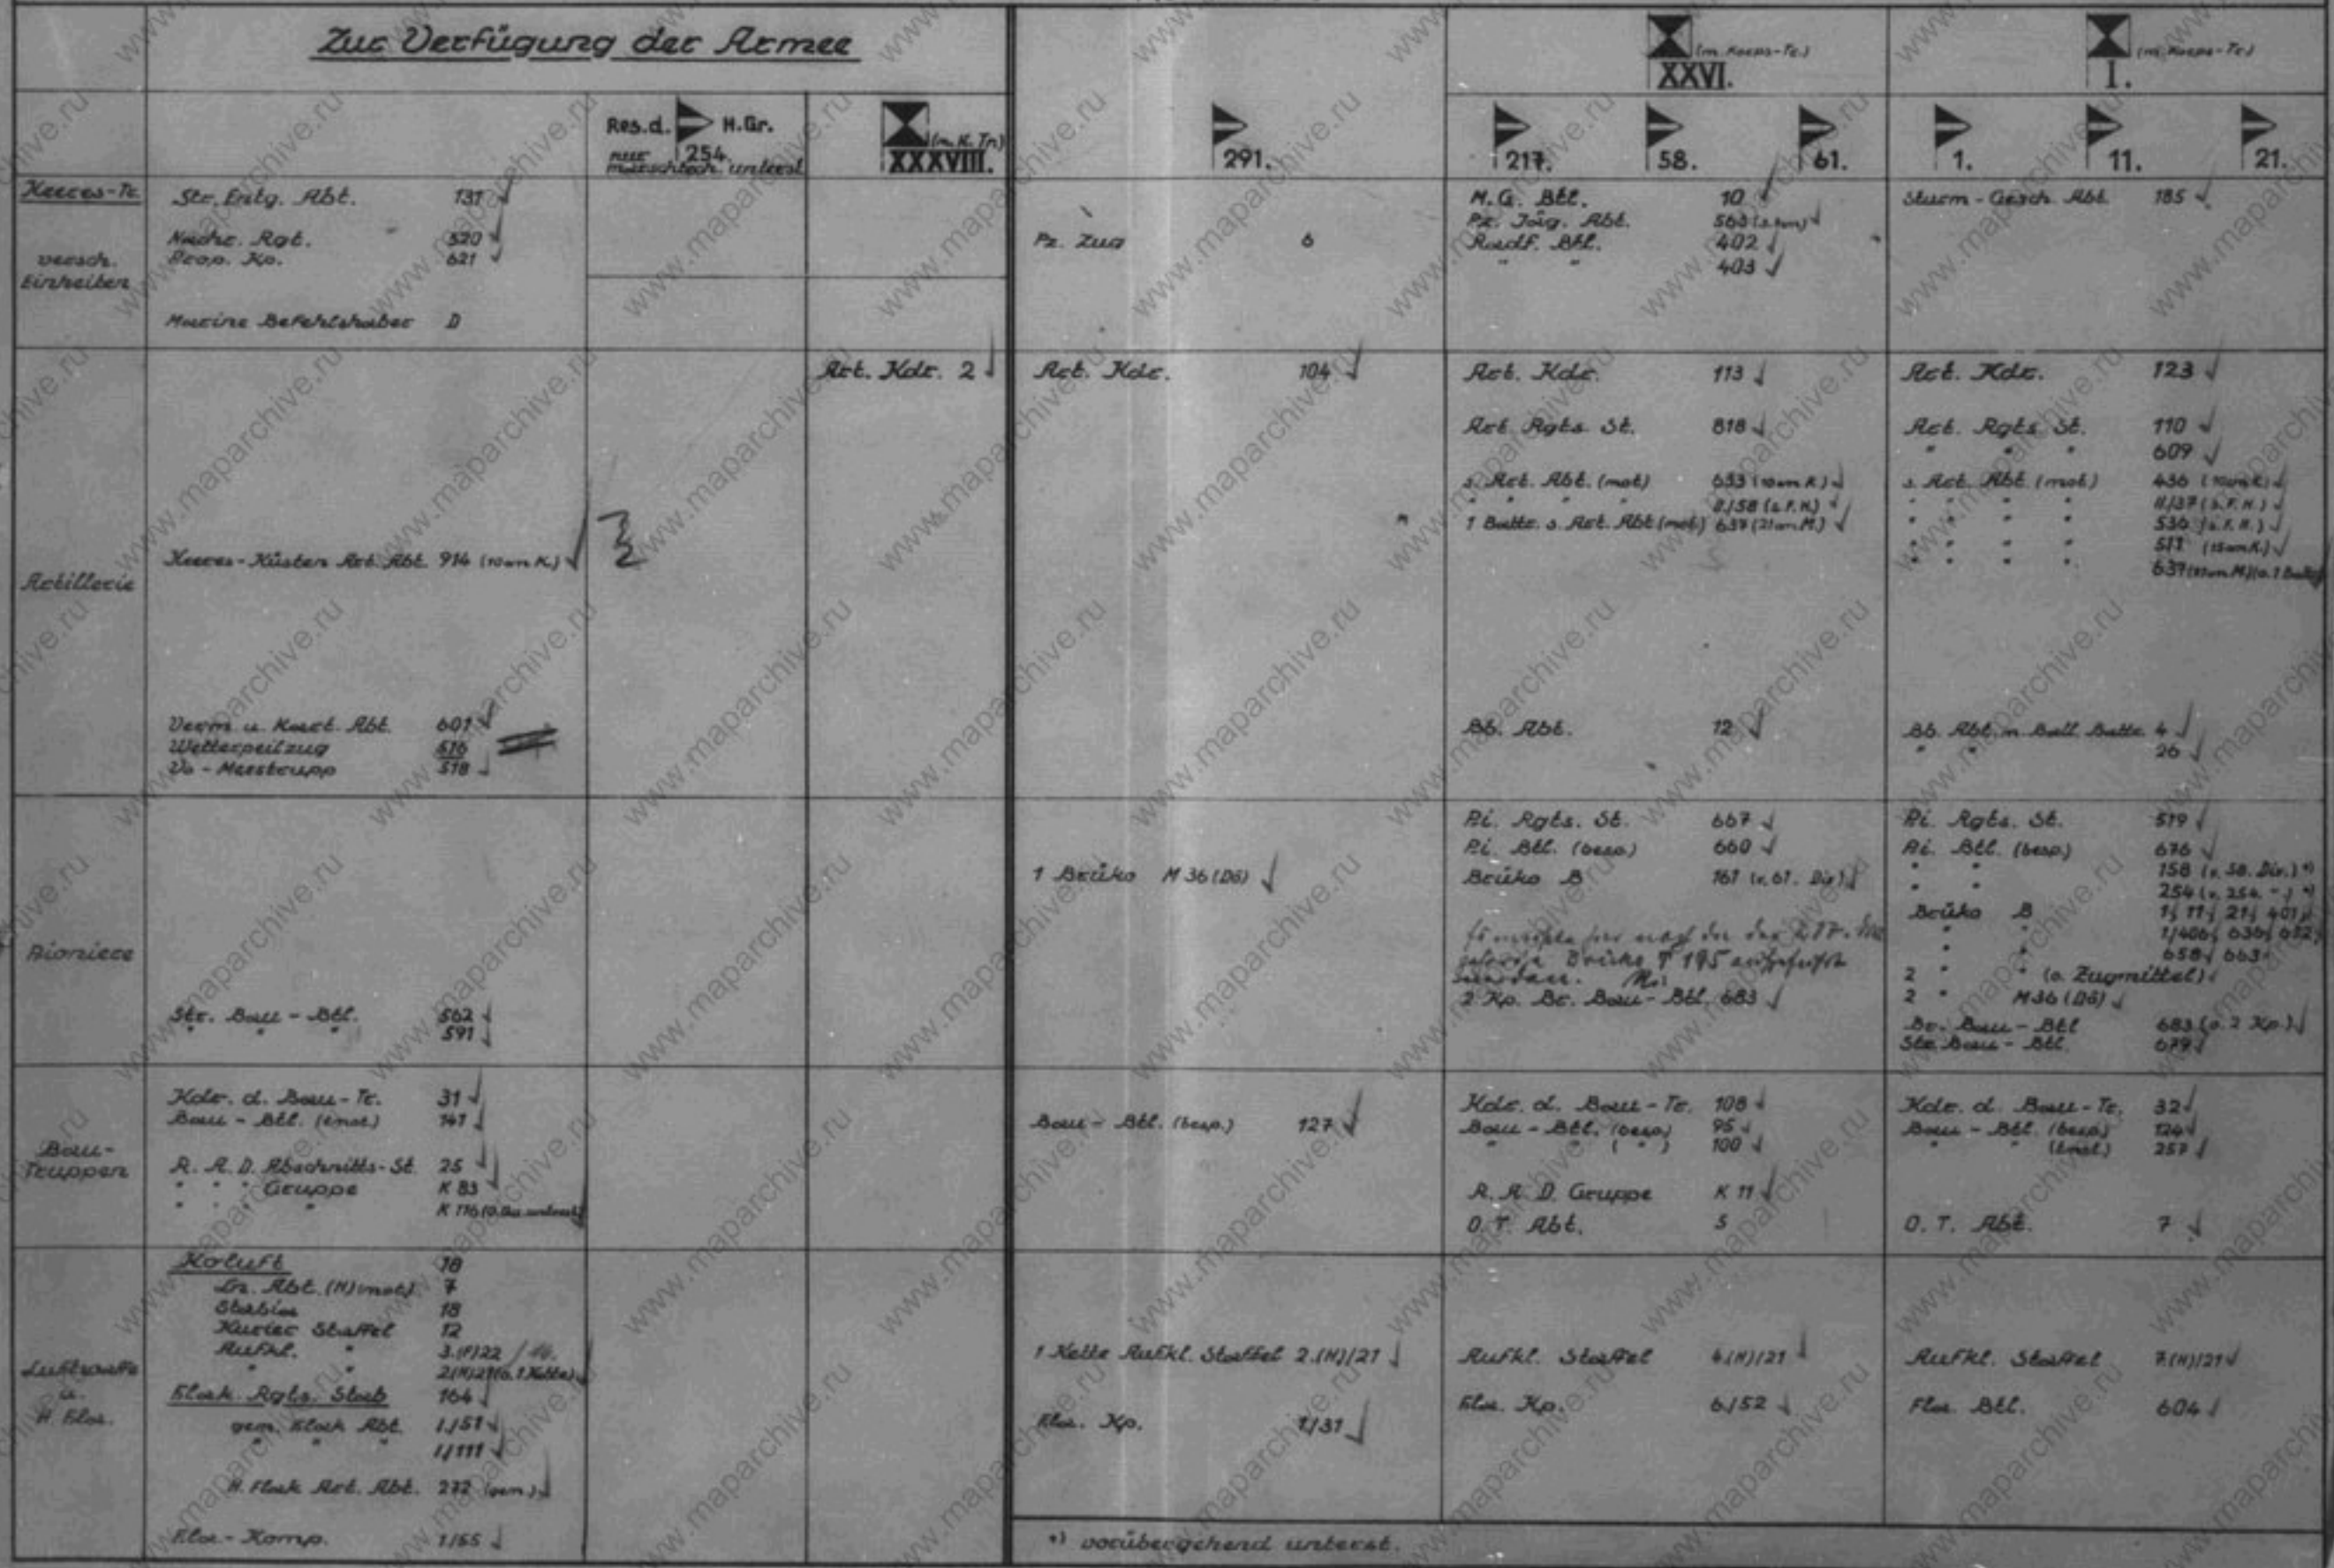 Zur Verfügung der Armee
Res.d. H.Gr.
nur 254.
marschtech. unterst.
(m. K. Tr.)
XXXVIII.
291.
(m. Korps-Tr.)
XXVI.
217. 58. 61.
(m. Korps-Tr.)
I.
1. 11. 21.
Heeres-Tr.
versch.
Einheiten
Str. Entg. Abt. 131
Nachr. Rgt. 520
Prop. Kp. 621
Marine Befehlshaber D
Pz. Zug 6
M.G. Btl. 10
Pz. Jäg. Abt. 563
Radf. Btl. 402
" " 403
Sturm-Gesch. Abt. 185
Artillerie
Heeres-Küsten Art. Abt. 914 (10cm K.)
Verm. u. Kart. Abt. 601
Wetterpeilzug 516
Vo-Messtrupp 518
Art. Kdr. 2
Art. Kdr. 104
Art. Kdr. 113
Art. Rgts. St. 818
s. Art. Abt. (mot) 633 (10cm K.)
" " " " II./58 (s.F.H.)
1 Battr. s. Art. Abt (mot) 637 (21cm M.)
Bb. Abt. 12
Art. Kdr. 123
Art. Rgts. St. 110
" " " 609
s. Art. Abt (mot) 436 (10cm K.)
" " " " II/37 (s.F.H.)
" " " " 536 (s.F.H.)
" " " " 511 (15cm K.)
" " " " 637 (21cm M.) (o. 1 Battr.)
Bb. Abt. m Ball. Battr. 4
" " 26
Pioniere
Str. Bau-Btl. 562
" " " 591
1 Brüko M 36 (Dö)
Pi. Rgts. St. 667
Pi. Btl. (besp.) 660
Brüko B 161 (v. 61. Div.)
Brüko T 195
2 Kp. Br. Bau-Btl. 683
Pi. Rgts. St. 519
Pi. Btl. (besp.) 676
" " 158 (v. 58. Div.) *)
" " 254 (v. 254. " ) *)
Brüko B 1, 11, 21, 401,
" " 1/406, 630,
" " 658, 663
2 " " (o. Zugmittel)
2 " M 36 (Dö)
Br. Bau-Btl 683 (o. 2 Kp.)
Str. Bau-Btl. 679
Bau-
Truppen
Kdr. d. Bau-Tr. 31
Bau-Btl. (tmot.) 141
R. A. D. Abschnitts-St. 25
" " " Gruppe K 83
" " " " K 116
Bau-Btl. (besp.) 127
Kdr. d. Bau-Tr. 108
Bau-Btl. (besp.) 95
" " ( " ) 100
R. A. D. Gruppe K 11
O. T. Abt. 5
Kdr. d. Bau-Tr. 32
Bau-Btl. (besp.) 124
" " (tmot.) 257
O. T. Abt. 7
Luftwaffe
u.
H. Fla.
Koluft 18
Ln. Abt. (H) (mot) 7
Stabia 18
Kurier Staffel 12
Aufkl. " 3.(F)22
" " 2.(H)21 (o. 1 Kette)
Flak Rgts. Stab 164
gem. Flak Abt. I./51
" " " I/111
H. Flak Art. Abt. 272 (gem.)
Fla-Komp. 1/55
1 Kette Aufkl. Staffel 2.(H)/21
Fla. Kp. 1/31
Aufkl. Staffel 4.(H)/21
Fla. Kp. 6/52
Aufkl. Staffel 7.(H)/21
Fla. Btl. 604
*) vorübergehend unterst.
www.maparchive.ru